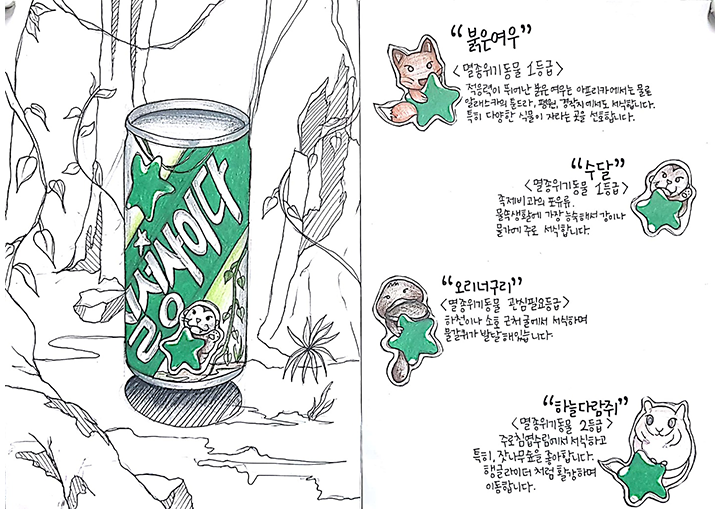 칠성사이다
"붉은여우"
<멸종위기동물 1등급>
적응력이 뛰어난 붉은 여우는 아프리카에서는 물론
알래스카의 툰드라, 평원, 경작지에서도 서식합니다.
특히 다양한 식물이 자라는 곳을 선호합니다.
"수달"
<멸종위기동물 1등급>
족제비과의 포유류.
물속생활에 가장 능숙해서 강이나
물가에 주로 서식합니다.
"오리너구리"
<멸종위기동물 관심필요등급>
하천이나 소호 근처 굴에서 서식하며
물갈퀴가 발달해있습니다.
"하늘다람쥐"
<멸종위기동물 2등급>
주로침엽수림에서 서식하고
특히, 잣나무숲을 좋아합니다.
행글라이더 처럼 활강하며
이동합니다.